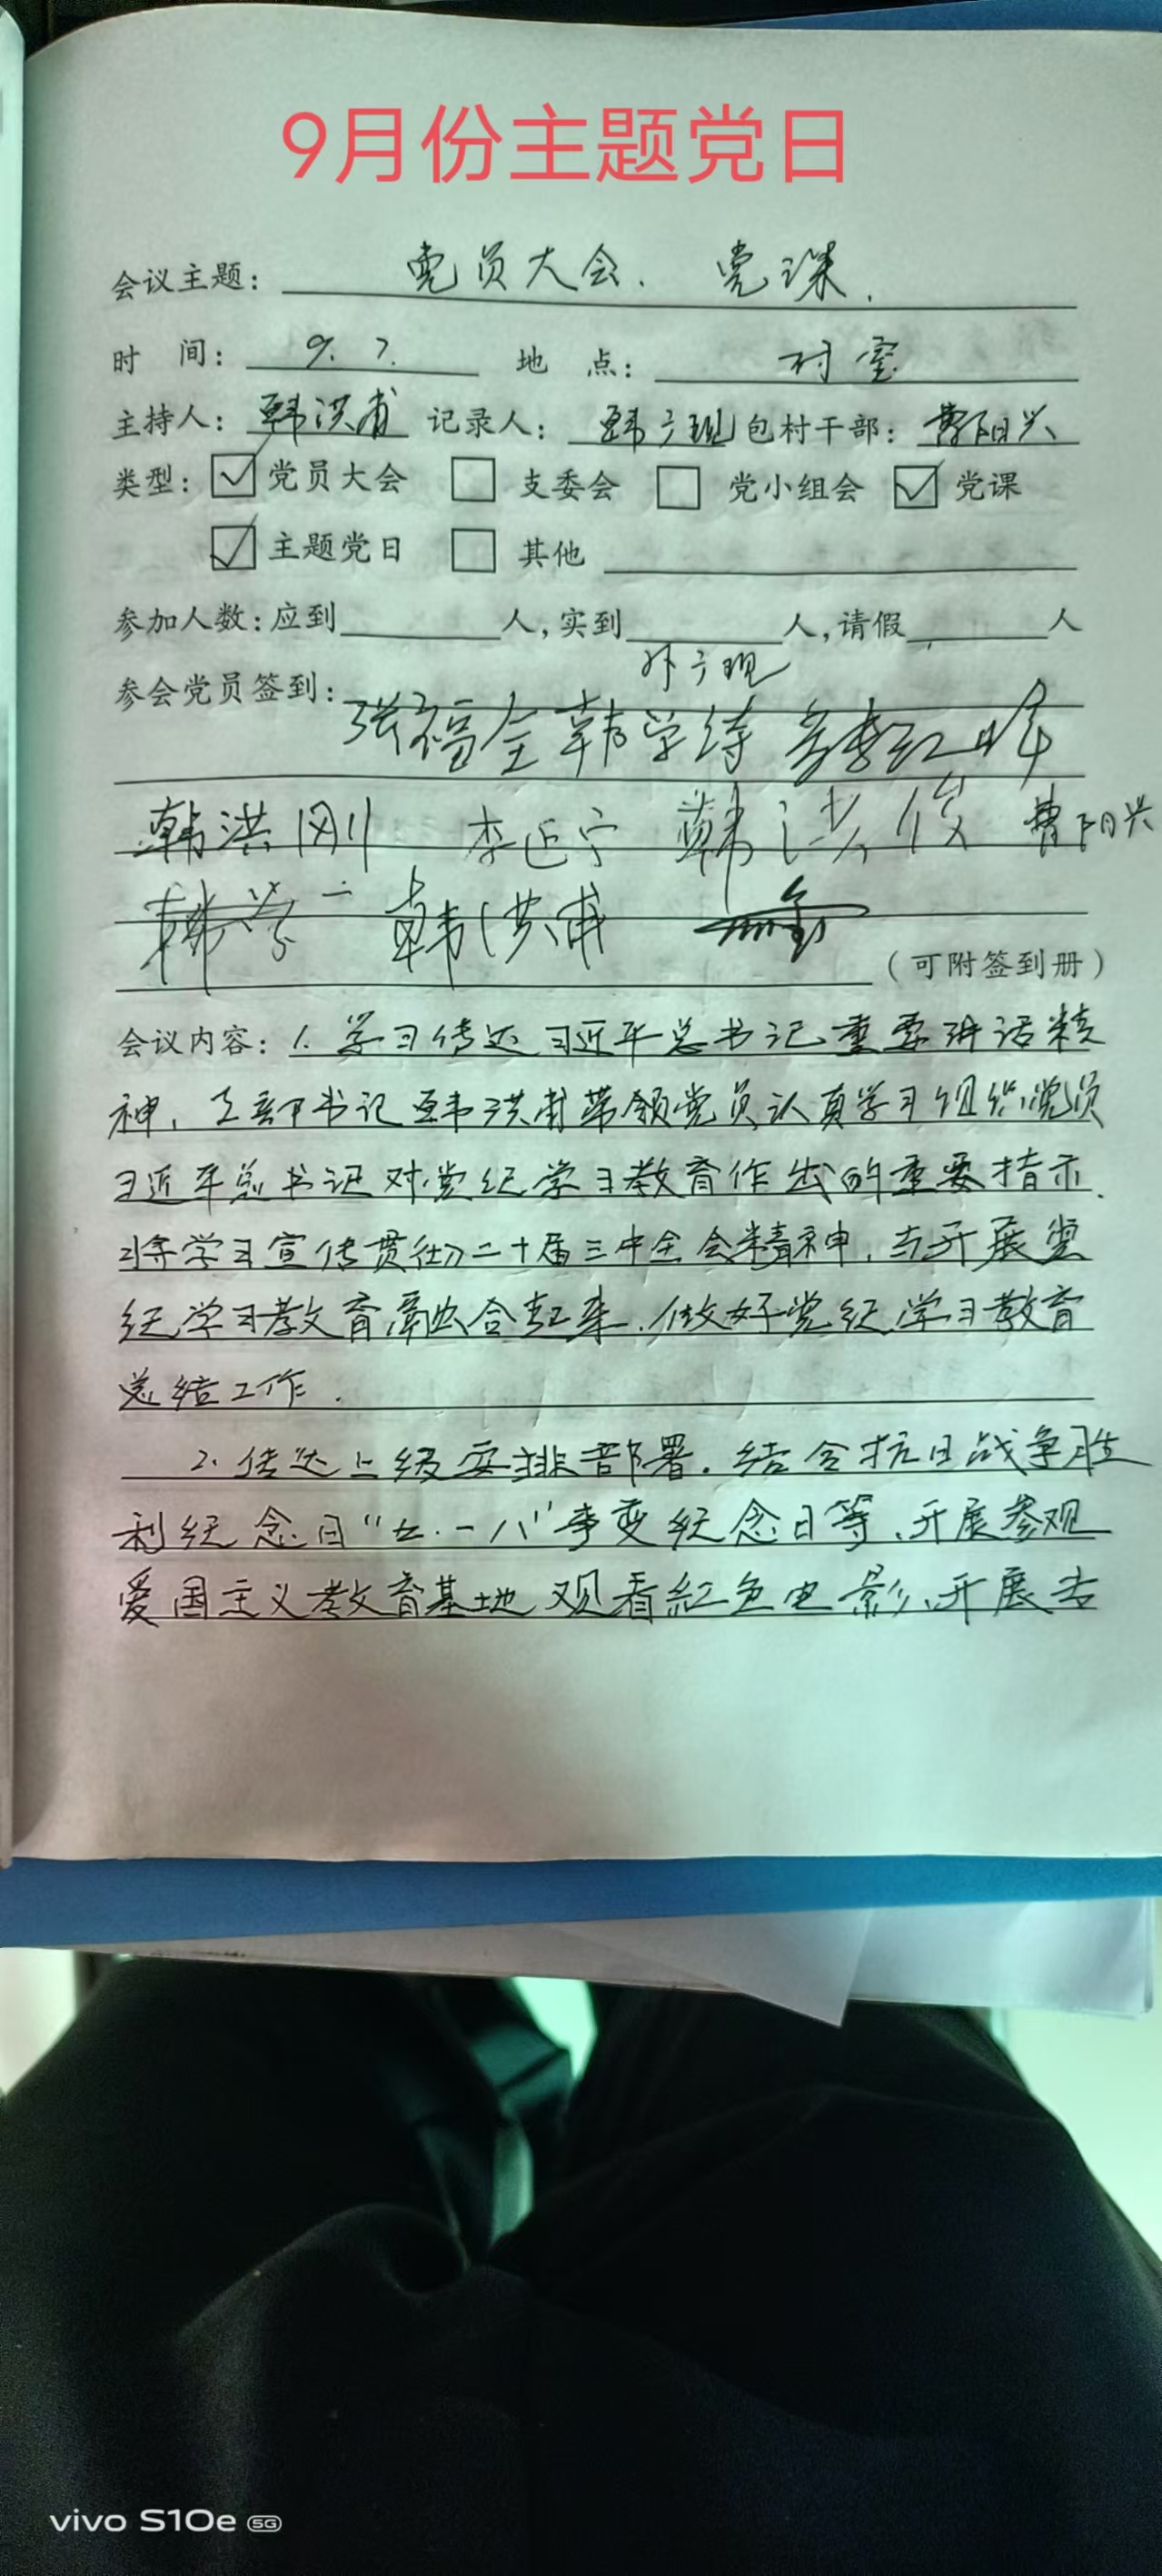 9月份主题党日
会议主题：党员大会. 党课.
时 间：9. 7. 地 点：村室
主持人：韩洪甫 记录人：韩广现 包村干部：曹阳兴
类型：党员大会 支委会 党小组会 党课
主题党日 其他
参加人数：应到 人，实到 人，请假 人
参会党员签到：
张福全 韩学 红
韩洪刚 李近宁 韩洪俊 曹阳兴
韩学 韩洪甫
（可附签到册）
会议内容：1. 学习传达习近平总书记重要讲话精
神，支部书记韩洪甫带领党员认真学习组织党员
习近平总书记对党纪学习教育作出的重要指示.
将学习宣传贯彻二十届三中全会精神，与开展党
纪学习教育融合起来，做好党纪学习教育
总结工作.
2. 传达上级安排部署. 结合抗日战争胜
利纪念日“九.一八”事变纪念日等、开展参观
爱国主义教育基地 观看红色电影、开展志
vivo S10e 5G